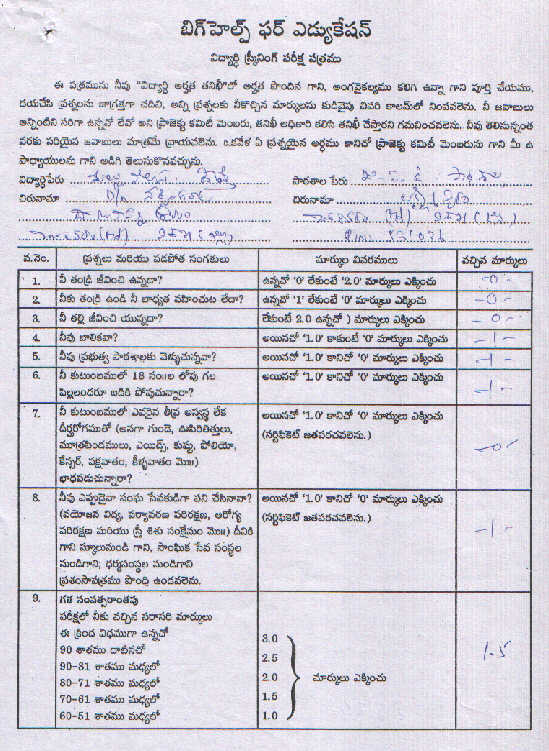 బిగ్‌హెల్ప్ ఫర్ ఎడ్యుకేషన్
విద్యార్థి స్క్రీనింగ్ పరీక్ష పత్రము
ఈ పత్రమును నీవు "విద్యార్థి అర్హత తనిఖీ"లో అర్హత పొందిన గాని, అంగవైకల్యము కలిగి ఉన్నా గాని పూర్తి చేయము,
దయచేసి ప్రశ్నలను జాగ్రత్తగా చదివి, అన్ని ప్రశ్నలకు నీకొచ్చిన మార్కులను కుడివైపు చివరి కాలమ్‌లో నింపవలెను. నీ జవాబులు
అన్నింటిని సరిగా ఉన్నవో లేవో అని ప్రాజెక్టు కమిటీ మెంబరు, తనిఖీ అధికారి కలిసి తనిఖీ చేస్తారని గమనించవలెను. నీవు తెలిసున్నంత
వరకు సరియైన జవాబులు మాత్రమే వ్రాయవలెను. ఒకవేళ ఏ ప్రశ్నయైన అర్థము కానిచో ప్రాజెక్టు కమిటీ మెంబరును గాని మీ ఉ
పాధ్యాయులను గాని అడిగి తెలుసుకొనవచ్చును.
విద్యార్థిపేరు పాఠశాల పేరు
చిరునామా D/o చిరునామా
వ.నెం. ప్రశ్నలు మరియు పడపోత సంగతులు మార్కుల వివరములు వచ్చిన మార్కులు
1. నీ తండ్రి జీవించి ఉన్నడా? ఉన్నచో '0' లేకుంటే '2.0' మార్కులు ఎక్కించు -0-
2. నీకు తండ్రి ఉండి నీ బాధ్యత వహించుట లేదా? ఉన్నచో '1' లేకుంటే '0' మార్కులు ఎక్కించు -0-
3. నీ తల్లి జీవించి యున్నదా? లేకుంటే 2.0 ఉన్నచో ) మార్కులు ఎక్కించు -0-
4. నీవు బాలికవా? అయినచో '1.0' కాకుంటే '0' మార్కులు ఎక్కించు -1-
5. నీవు ప్రభుత్వ పాఠశాలకు వెళ్ళుచున్నవా? అయినచో '1.0' కానిచో '0' మార్కులు ఎక్కించు -1-
6. నీ కుటుంబములో 18 సం॥ల లోపు గల అయినచో '1.0' కానిచో '0' మార్కులు ఎక్కించు -1-
పిల్లలందరూ బడికి పోవుచున్నారా?
7. నీ కుటుంబములో ఎవరైన తీవ్ర అస్వస్థ లేక అయినచో '1.0' కానిచో '0' మార్కులు ఎక్కించు
దీర్ఘరోగముతో (అనగా గుండె, ఊపిరితిత్తులు, (సర్టిఫికెట్ జతపరచవలెను.) -0-
మూత్రపిండములు, ఎయిడ్స్, కుష్ఠు, పోలియో,
కేన్సర్, పక్షవాతం, కీళ్ళవాతం మొ॥)
బాధపడుచున్నారా?
8. నీవు ఎప్పుడైనా సంఘ సేవకుడిగా పని చేసినావా? అయినచో '1.0' కానిచో '0' మార్కులు ఎక్కించు
(వయోజన విద్య, పర్యావరణ పరిరక్షణ, ఆరోగ్య (సర్టిఫికెట్ జతపరచవలెను.)
పరిరక్షణ మరియు స్త్రీ శిశు సంక్షేమం మొ॥) దీనికి -1-
గాని స్కూలునుండి గాని, సాంఘిక సేవ సంస్థల
నుండిగాని; ధర్మసంస్థల నుండిగాని
ప్రశంసాపత్రము పొంది ఉండవలెను.
9. గత సంవత్సరాంతపు
పరీక్షలో నీకు వచ్చిన సరాసరి మార్కులు
ఈ క్రింద విధముగా ఉన్నచో
90 శాతము దాటినచో 3.0
90-81 శాతము మధ్యలో 2.5
80-71 శాతము మధ్యలో 2.0 మార్కులు ఎక్కించు 1.5
70-61 శాతము మధ్యలో 1.5
60-51 శాతము మధ్యలో 1.0